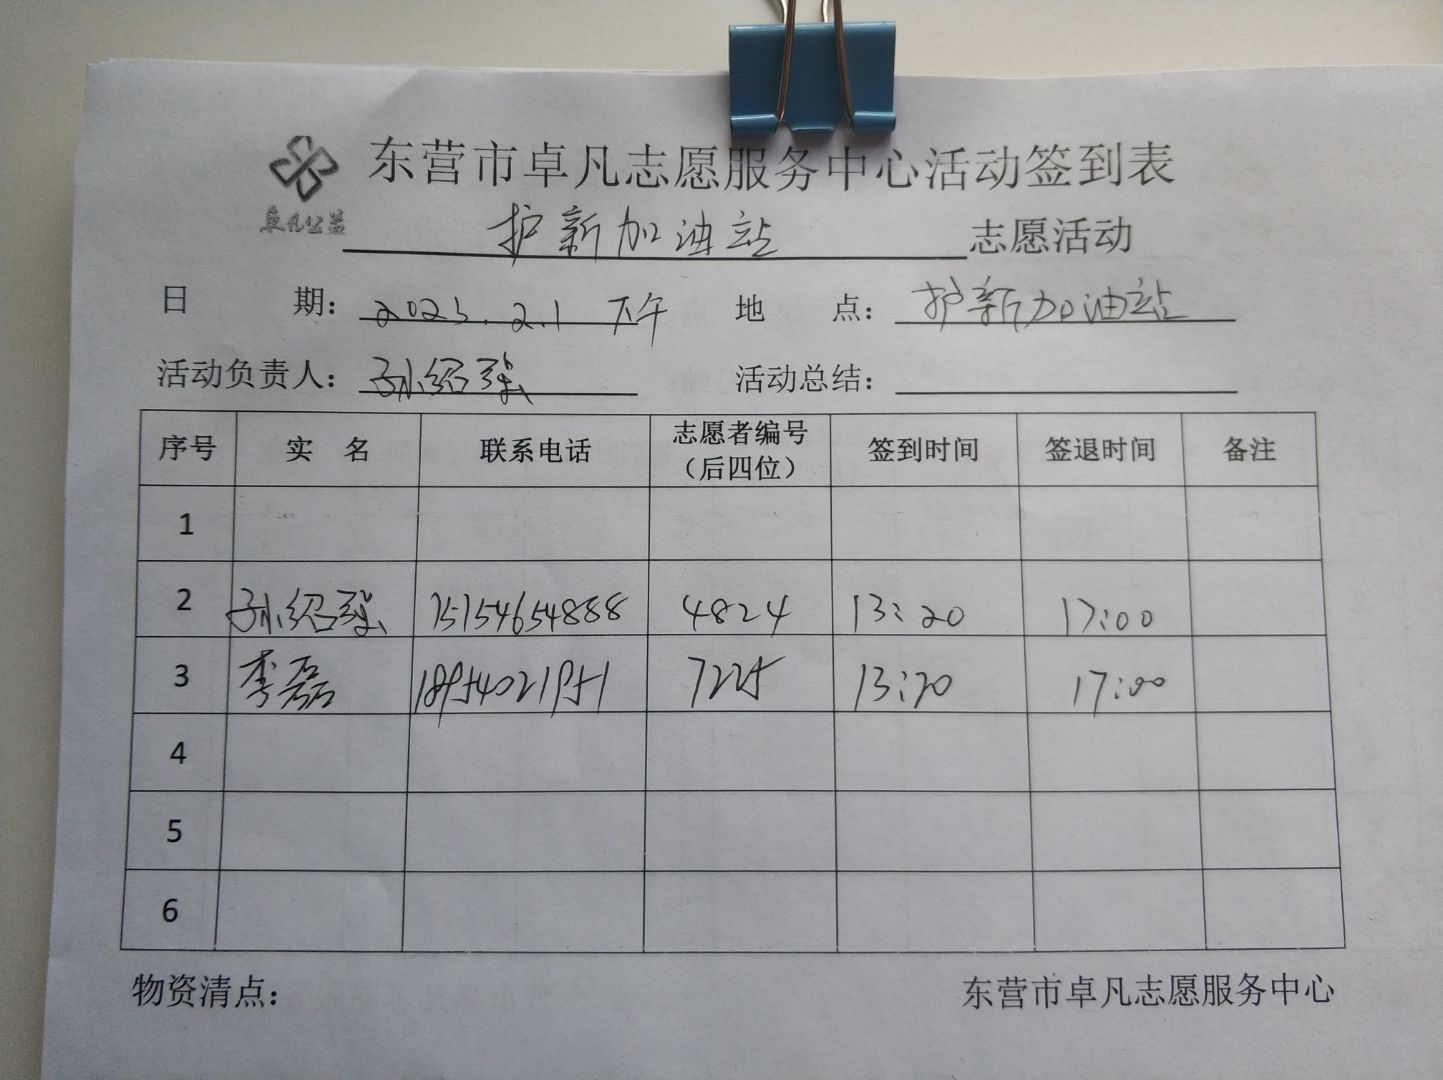 东营市卓凡志愿服务中心活动签到表
卓凡公益
护新加油站 志愿活动
日 期： 2023.2.1 下午 地 点： 护新加油站
活动负责人： 孙绍强 活动总结：
序号 实 名 联系电话 志愿者编号（后四位） 签到时间 签退时间 备注
1
2 孙绍强 15154654888 4824 13:20 17:00
3 李磊 18954021951 7225 13:20 17:00
4
5
6
物资清点： 东营市卓凡志愿服务中心